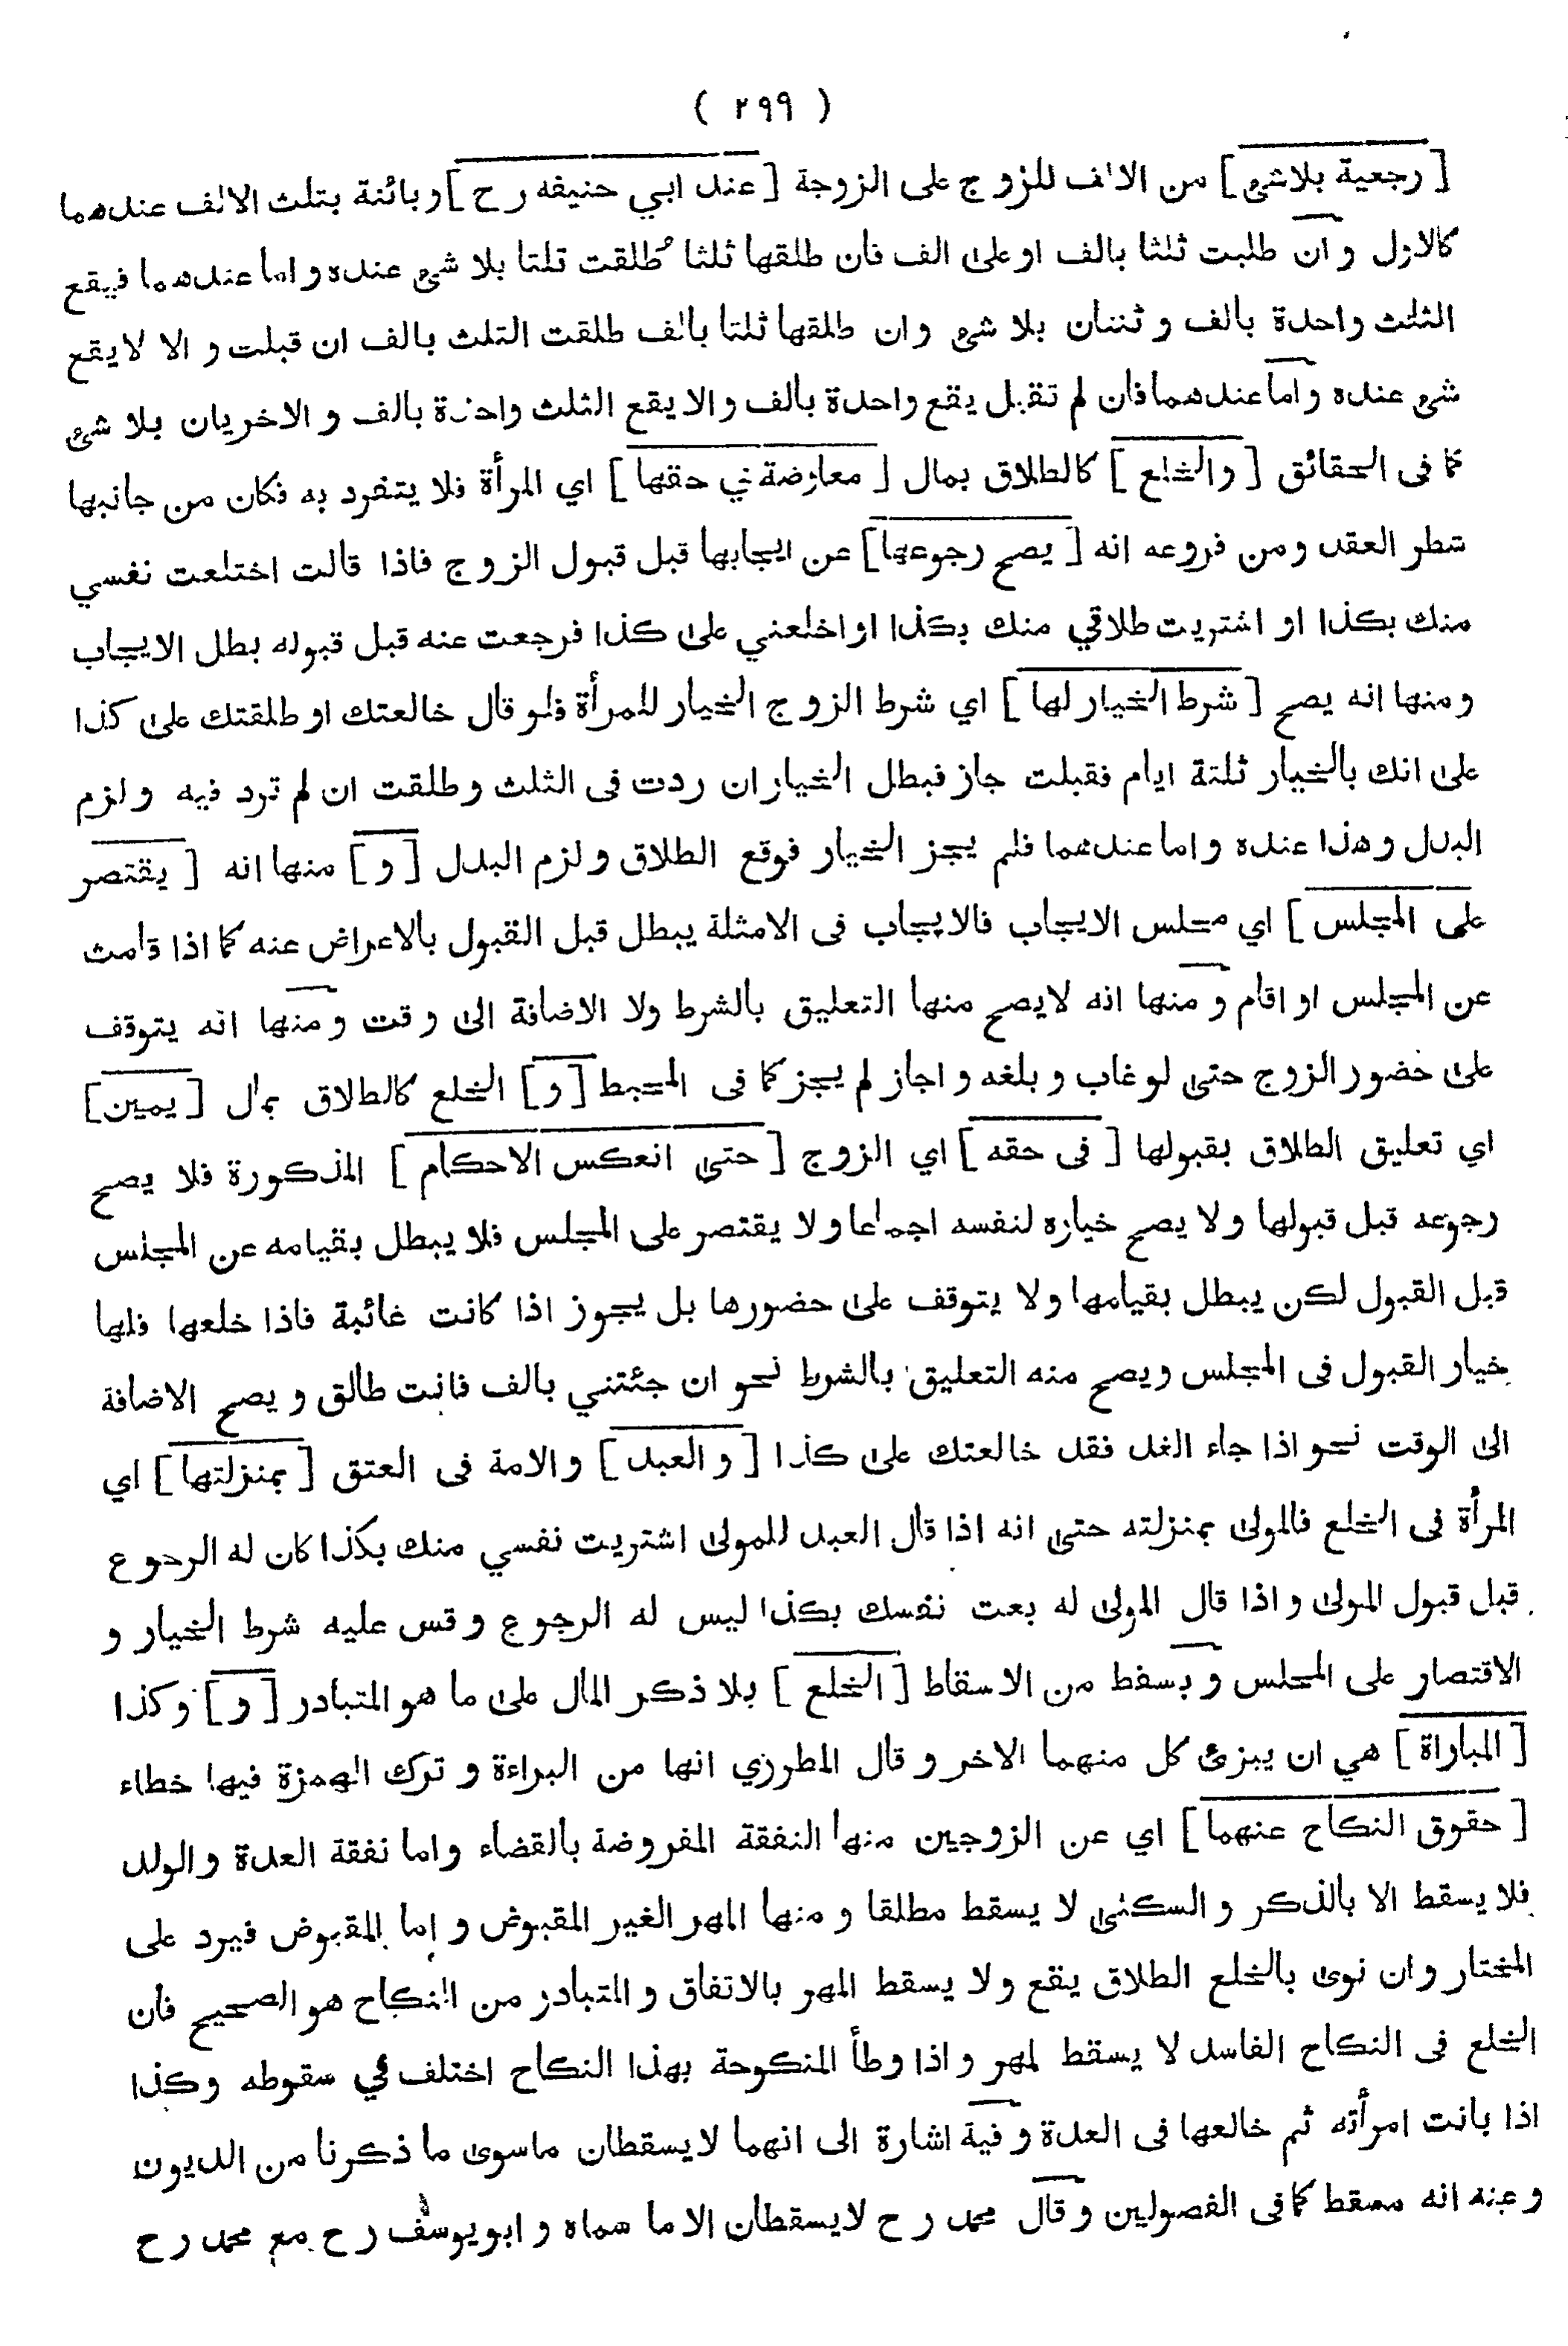 ( ٢٩٩ )
[ رجعية بلاشئ ] من الالف للزوج على الزوجة [ عند ابي حنيفه رح ] وبائنة بثلث الالف عندهما
كالاول وان طلبت ثلثا بالف او على الف فان طلقها ثلثا طلقت ثلثا بلا شئ عنده واما عندهما فيقع
الثلث واحدة بالف و ثنتان بلا شئ وان طلقها ثلثا بالف طلقت الثلث بالف ان قبلت و الا لايقع
شئ عنده واما عندهما فان لم تقبل يقع واحدة بالف والا يقع الثلث واحدة بالف و الاخريان بلا شئ
كما فى الحقائق [ والخلع ] كالطلاق بمال [ معاوضة في حقها ] اي المرأة فلا يتفرد به فكان من جانبها
شطر العقد ومن فروعه انه [ يصح رجوعها ] عن ايجابها قبل قبول الزوج فاذا قالت اختلعت نفسي
منك بكذا او اشتريت طلاقي منك بكذا او اخلعني على كذا فرجعت عنه قبل قبوله بطل الايجاب
ومنها انه يصح [ شرط الخيار لها ] اي شرط الزوج الخيار للمرأة فلو قال خالعتك او طلقتك على كذا
على انك بالخيار ثلثة ايام فقبلت جاز فبطل الخيار ان ردت فى الثلث وطلقت ان لم ترد فيه ولزم
البدل وهذا عنده واما عندهما فلم يجز الخيار فوقع الطلاق ولزم البدل [ و ] منها انه [ يقتصر
على المجلس ] اي مجلس الايجاب فالايجاب فى الامثلة يبطل قبل القبول بالاعراض عنه كما اذا قامت
عن المجلس او اقام ومنها انه لايصح منها التعليق بالشرط ولا الاضافة الى وقت ومنها انه يتوقف
على حضور الزوج حتى لو غاب و بلغه و اجاز لم يجز كما فى المحيط [ و ] الخلع كالطلاق بمال [ يمين ]
اي تعليق الطلاق بقبولها [ فى حقه ] اي الزوج [ حتى انعكس الاحكام ] المذكورة فلا يصح
رجوعه قبل قبولها ولا يصح خياره لنفسه اجماعا ولا يقتصر على المجلس فلا يبطل بقيامه عن المجلس
قبل القبول لكن يبطل بقيامها ولا يتوقف على حضورها بل يجوز اذا كانت غائبة فاذا خلعها فلها
خيار القبول فى المجلس ويصح منه التعليق بالشرط نحو ان جئتني بالف فانت طالق و يصح الاضافة
الى الوقت نحو اذا جاء الغد فقد خالعتك على كذا [ و العبد ] والامة فى العتق [ بمنزلتها ] اي
المرأة فى الخلع فالمولى بمنزلته حتى انه اذا قال العبد للمولى اشتريت نفسي منك بكذا كان له الرجوع
قبل قبول المولى و اذا قال المولى له بعت نفسك بكذا ليس له الرجوع وقس عليه شرط الخيار و
الاقتصار على المجلس و يسقط من الاسقاط [ الخلع ] بلا ذكر المال على ما هو المتبادر [ و ] وكذا
[ المباراة ] هي ان يبرئ كل منهما الاخر و قال المطرزي انها من البراءة و ترك الهمزة فيها خطاء
[ حقوق النكاح عنهما ] اي عن الزوجين منها النفقة المفروضة بالقضاء واما نفقة العدة والولد
فلا يسقط الا بالذكر و السكنى لا يسقط مطلقا و منها المهر الغير المقبوض و اما المقبوض فيرد على
المختار وان نوى بالخلع الطلاق يقع ولا يسقط المهر بالاتفاق و المتبادر من النكاح هو الصحيح فان
الخلع فى النكاح الفاسد لا يسقط لمهر و اذا وطأ المنكوحة بهذا النكاح اختلف في سقوطه وكذا
اذا بانت امرأته ثم خالعها فى العدة وفية اشارة الى انهما لايسقطان ماسوى ما ذكرنا من الديون
وعنه انه مسقط كما فى الفصولين وقال محمد رح لايسقطان الا ما سماه و ابو يوسف رح مع محمد رح